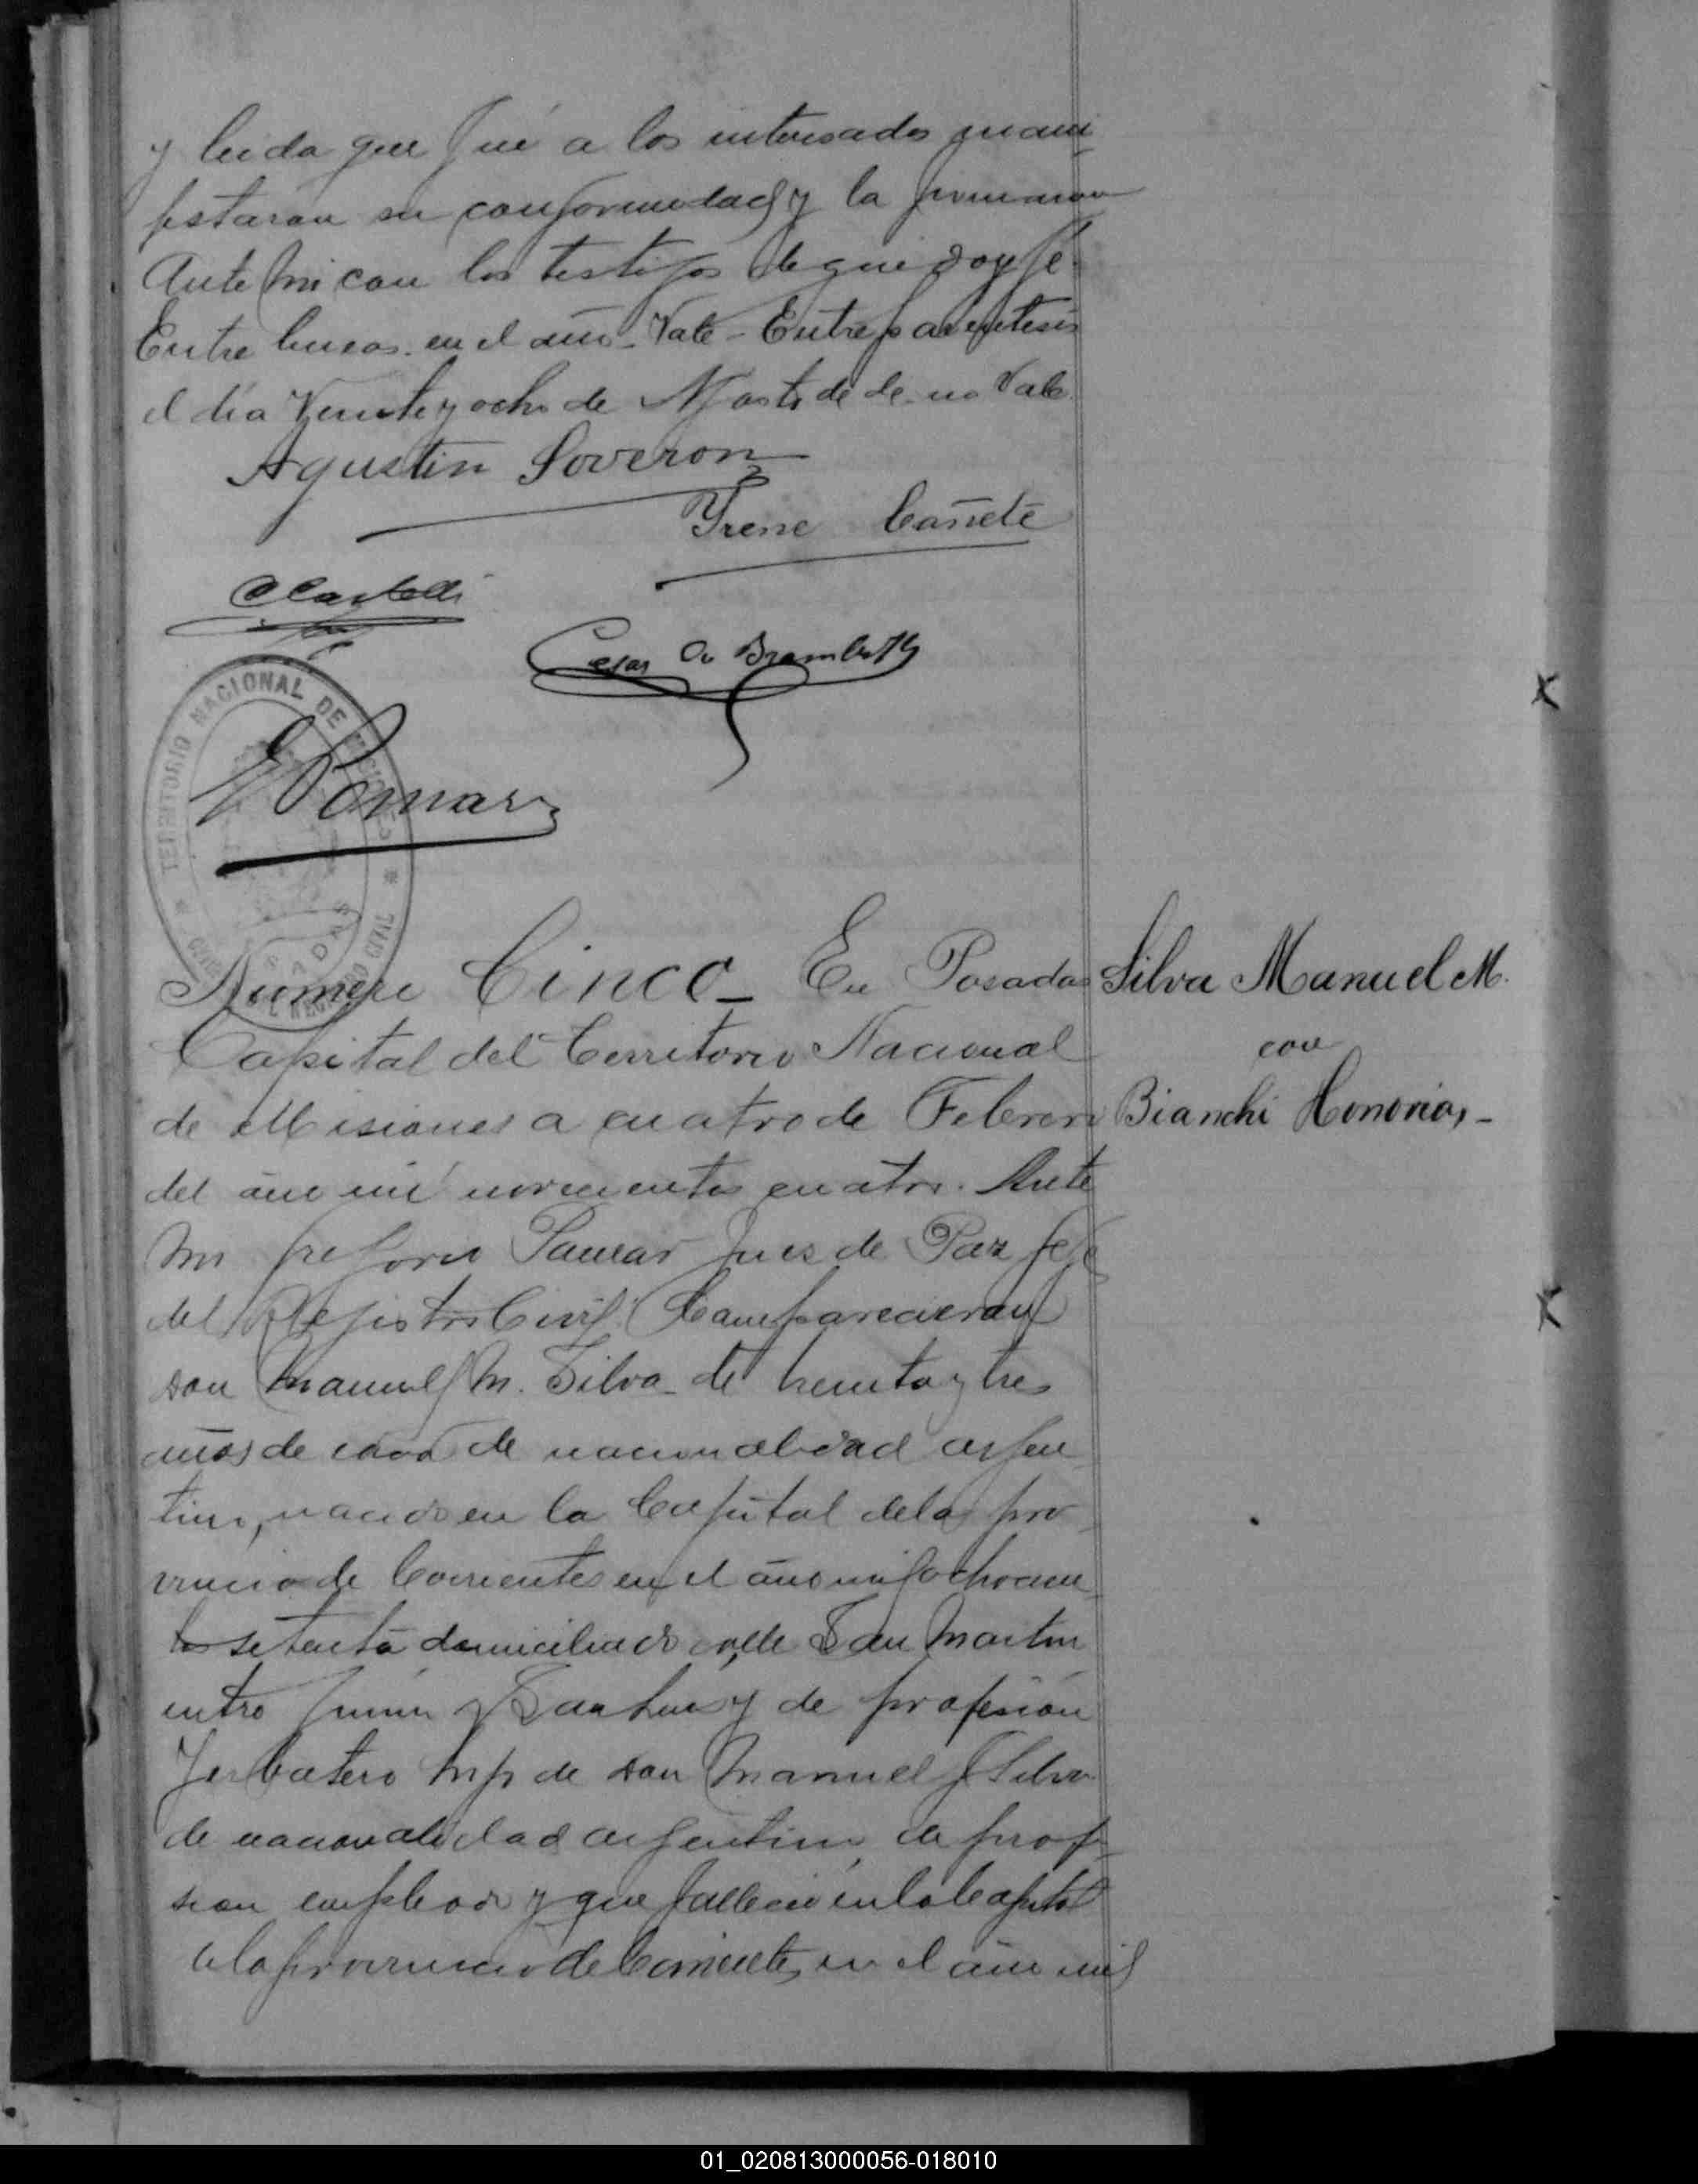 y leida que fué a los interesados mani-
festaron su conformidad y la firmaron
Ante mi con los testigos de que doy fé.
Entre lineas. en el año - Vale - Entre parentesis
el día Veinte y ocho de Agosto de de no Vale
Agustin Soveron
Yrene Cañete
Cesar
TERRITORIO NACIONAL DE MISIONES
POSADAS
REGISTRO CIVIL
Numero Cinco - En Posadas
Silva Manuel M.
Capital del Territorio Nacional
con
de Misiones a cuatro de Febrero
Bianchi Honoria, -
del año mil novecientos cuatro. Ante
mi Gregorio Juez de Paz Jefe
del Registro Civil. Comparecieron
don Manuel M. Silva de treinta y tres
años de edad de nacionalidad argen
tino, nacido en la Capital de la pro
vincia de Corrientes en el año mil ochocien
tos setenta domiciliado calle San Martin
entre Junin y San Luis y de profesión
Yerbatero hijo de don Manuel J Silva
de nacionalidad argentino, de profe-
sion empleado y que fallecio en la Capital
de la provincia de Corrientes en el año mil
01_020813000056-018010